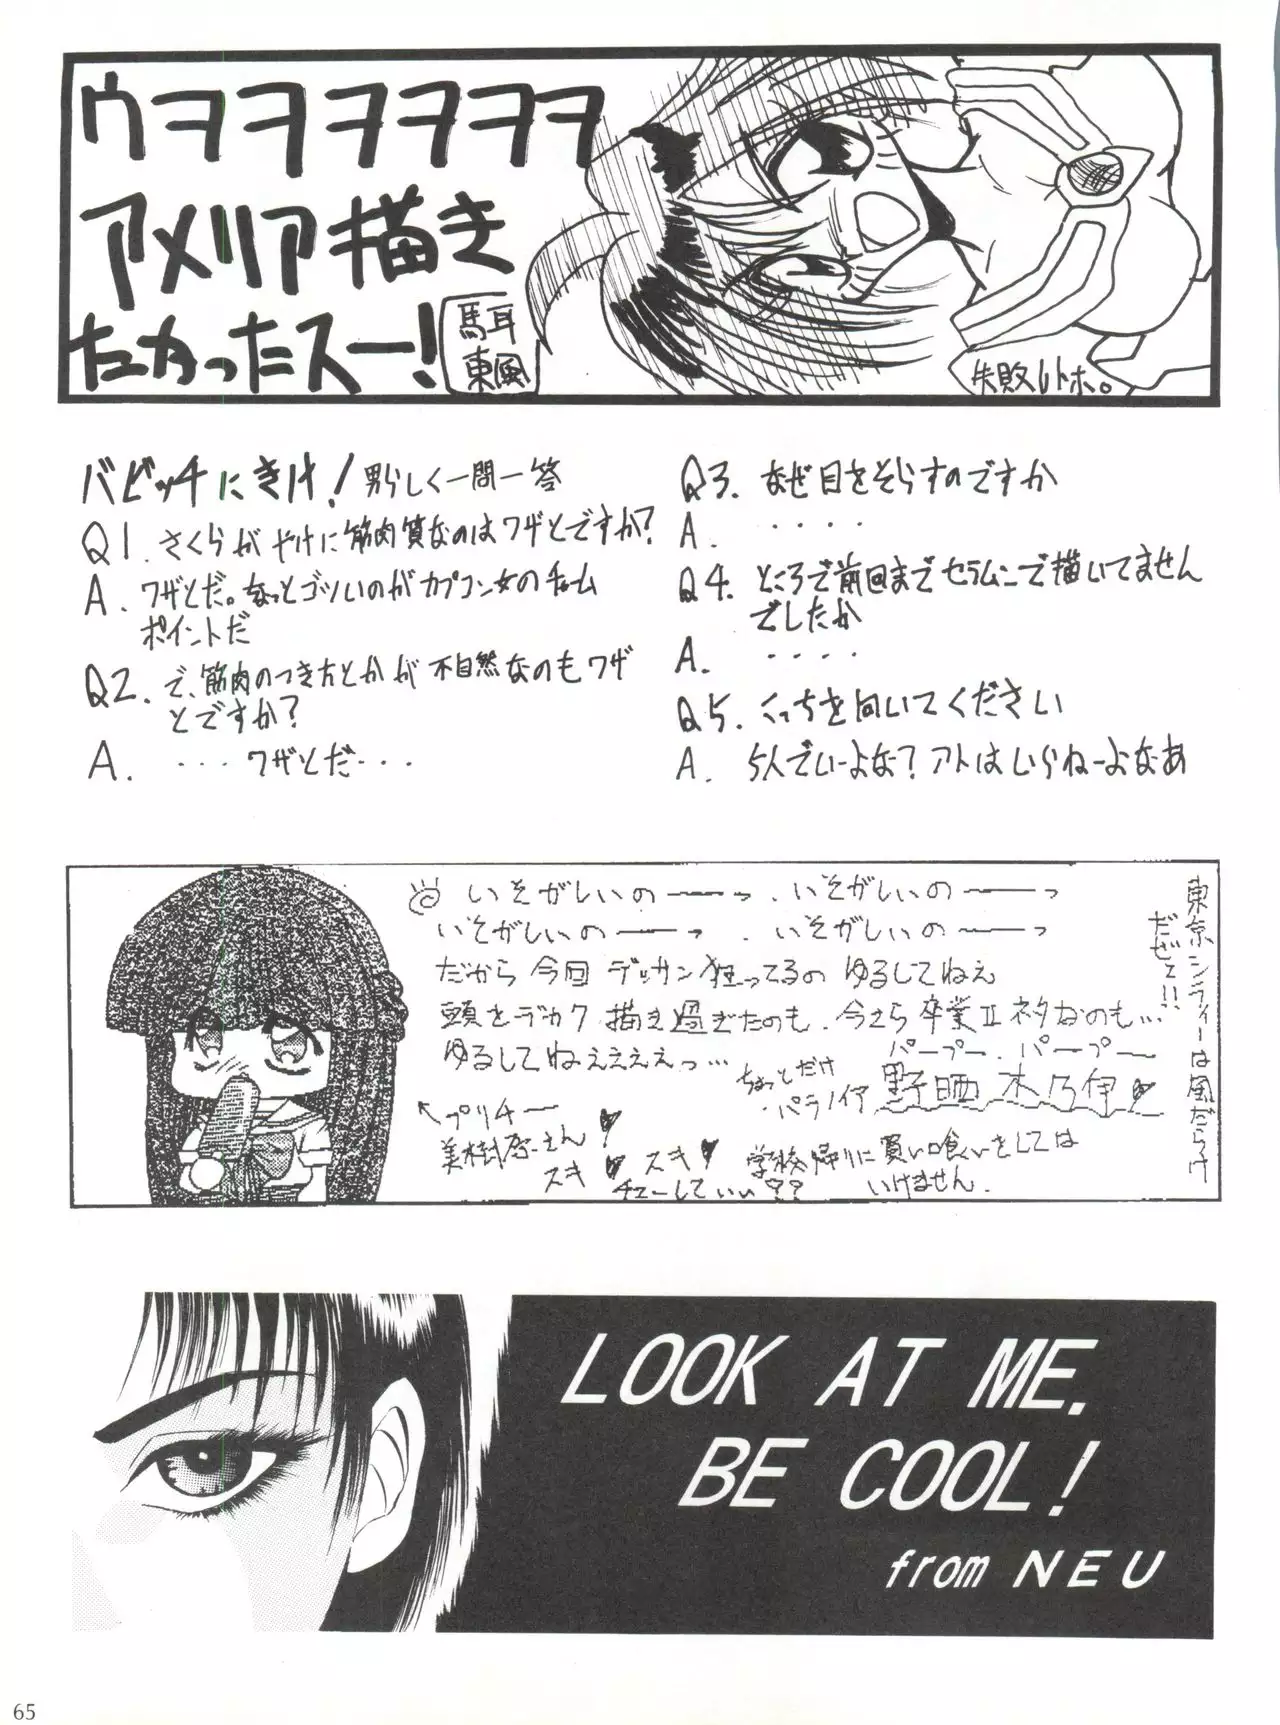 ウヲヲヲヲヲヲ
アメリア描き
たかったスー!
馬耳
東風
失敗レトホ。
バビッチにきけ!男らしく一問一答
Q1.さくらがやけに筋肉質なのはワザとですか?
A.ワザとだ。ちょっとゴツいのがカプコン女のチャーム
ポイントだ
Q2.で、筋肉のつき方とかが不自然なのもワザ
とですか?
A. ・・・ワザとだ・・・
Q3.なぜ目をそらすのですか
A. ・・・・
Q4.ところで前回までセラムンで描いてません
でしたか
A. ・・・・
Q5.こっちを向いてください
A. 5人でいーよな?アトはいらねーよなあ
いそがしいの――っ.いそがしいの――っ
いそがしいの――っ.いそがしいの――っ
だから今回デッサン狂ってるのゆるしてねぇ
頭をデカク描き過ぎたのも.今さら卒業Ⅱネタなのも...
ゆるしてねぇぇぇぇっ...
パープー.パープー
ちょっとだけ
・パラノイア
野晒 木乃伊♥
東京シンフィーは風だらけ
だぜてい!!
←プリチー
美樹原さん♥
スキ♥スキ♥
チューしていい??
学校帰りに買い喰いをしては
いけません.
LOOK AT ME.
BE COOL!
from NEU
65